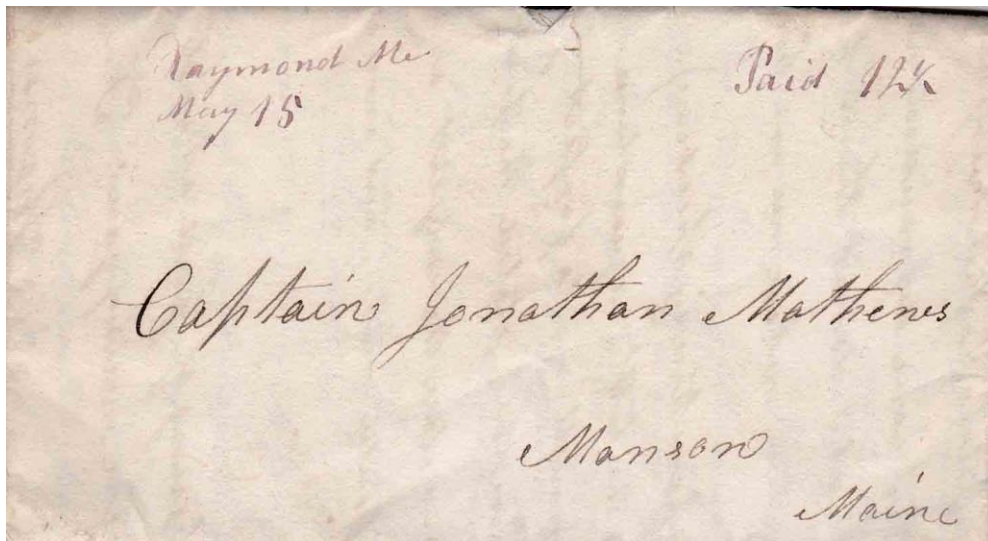 Raymond Me
May 15
Paid 12½
Captain Jonathan Mathews
Monson
Maine